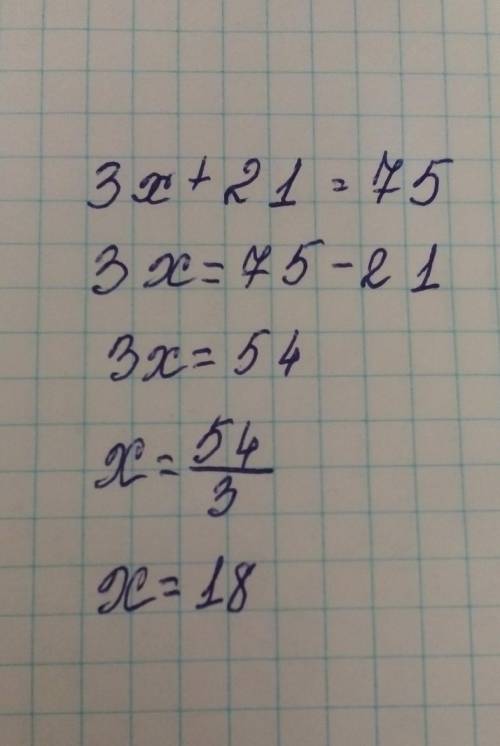 3x + 21 = 75
3x = 75 - 21
3x = 54
x = 54/3
x = 18